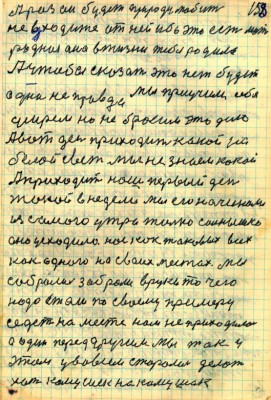 158
А раз он будет природу любит
не уходите от ней ибо это ест мат
родная она в жизни тебя родила
А чтобы сказат это нет будет
одна не правда мы приучим себя
умрем но не бросим это дело
А вот ден приходит какой на
белой свет мы не знаем какой
А приходит наш первый ден
такой в неделе мы его начинали
из самого утра толко солнышко
оно уходило нас как таковых всех
как одного на своих местах. мы
собрали забрали в руки то чего
надо стали по своему примеру
садст на месте нам не приходило
один перед другим мы так у
этом уловием старали делат
хот кому